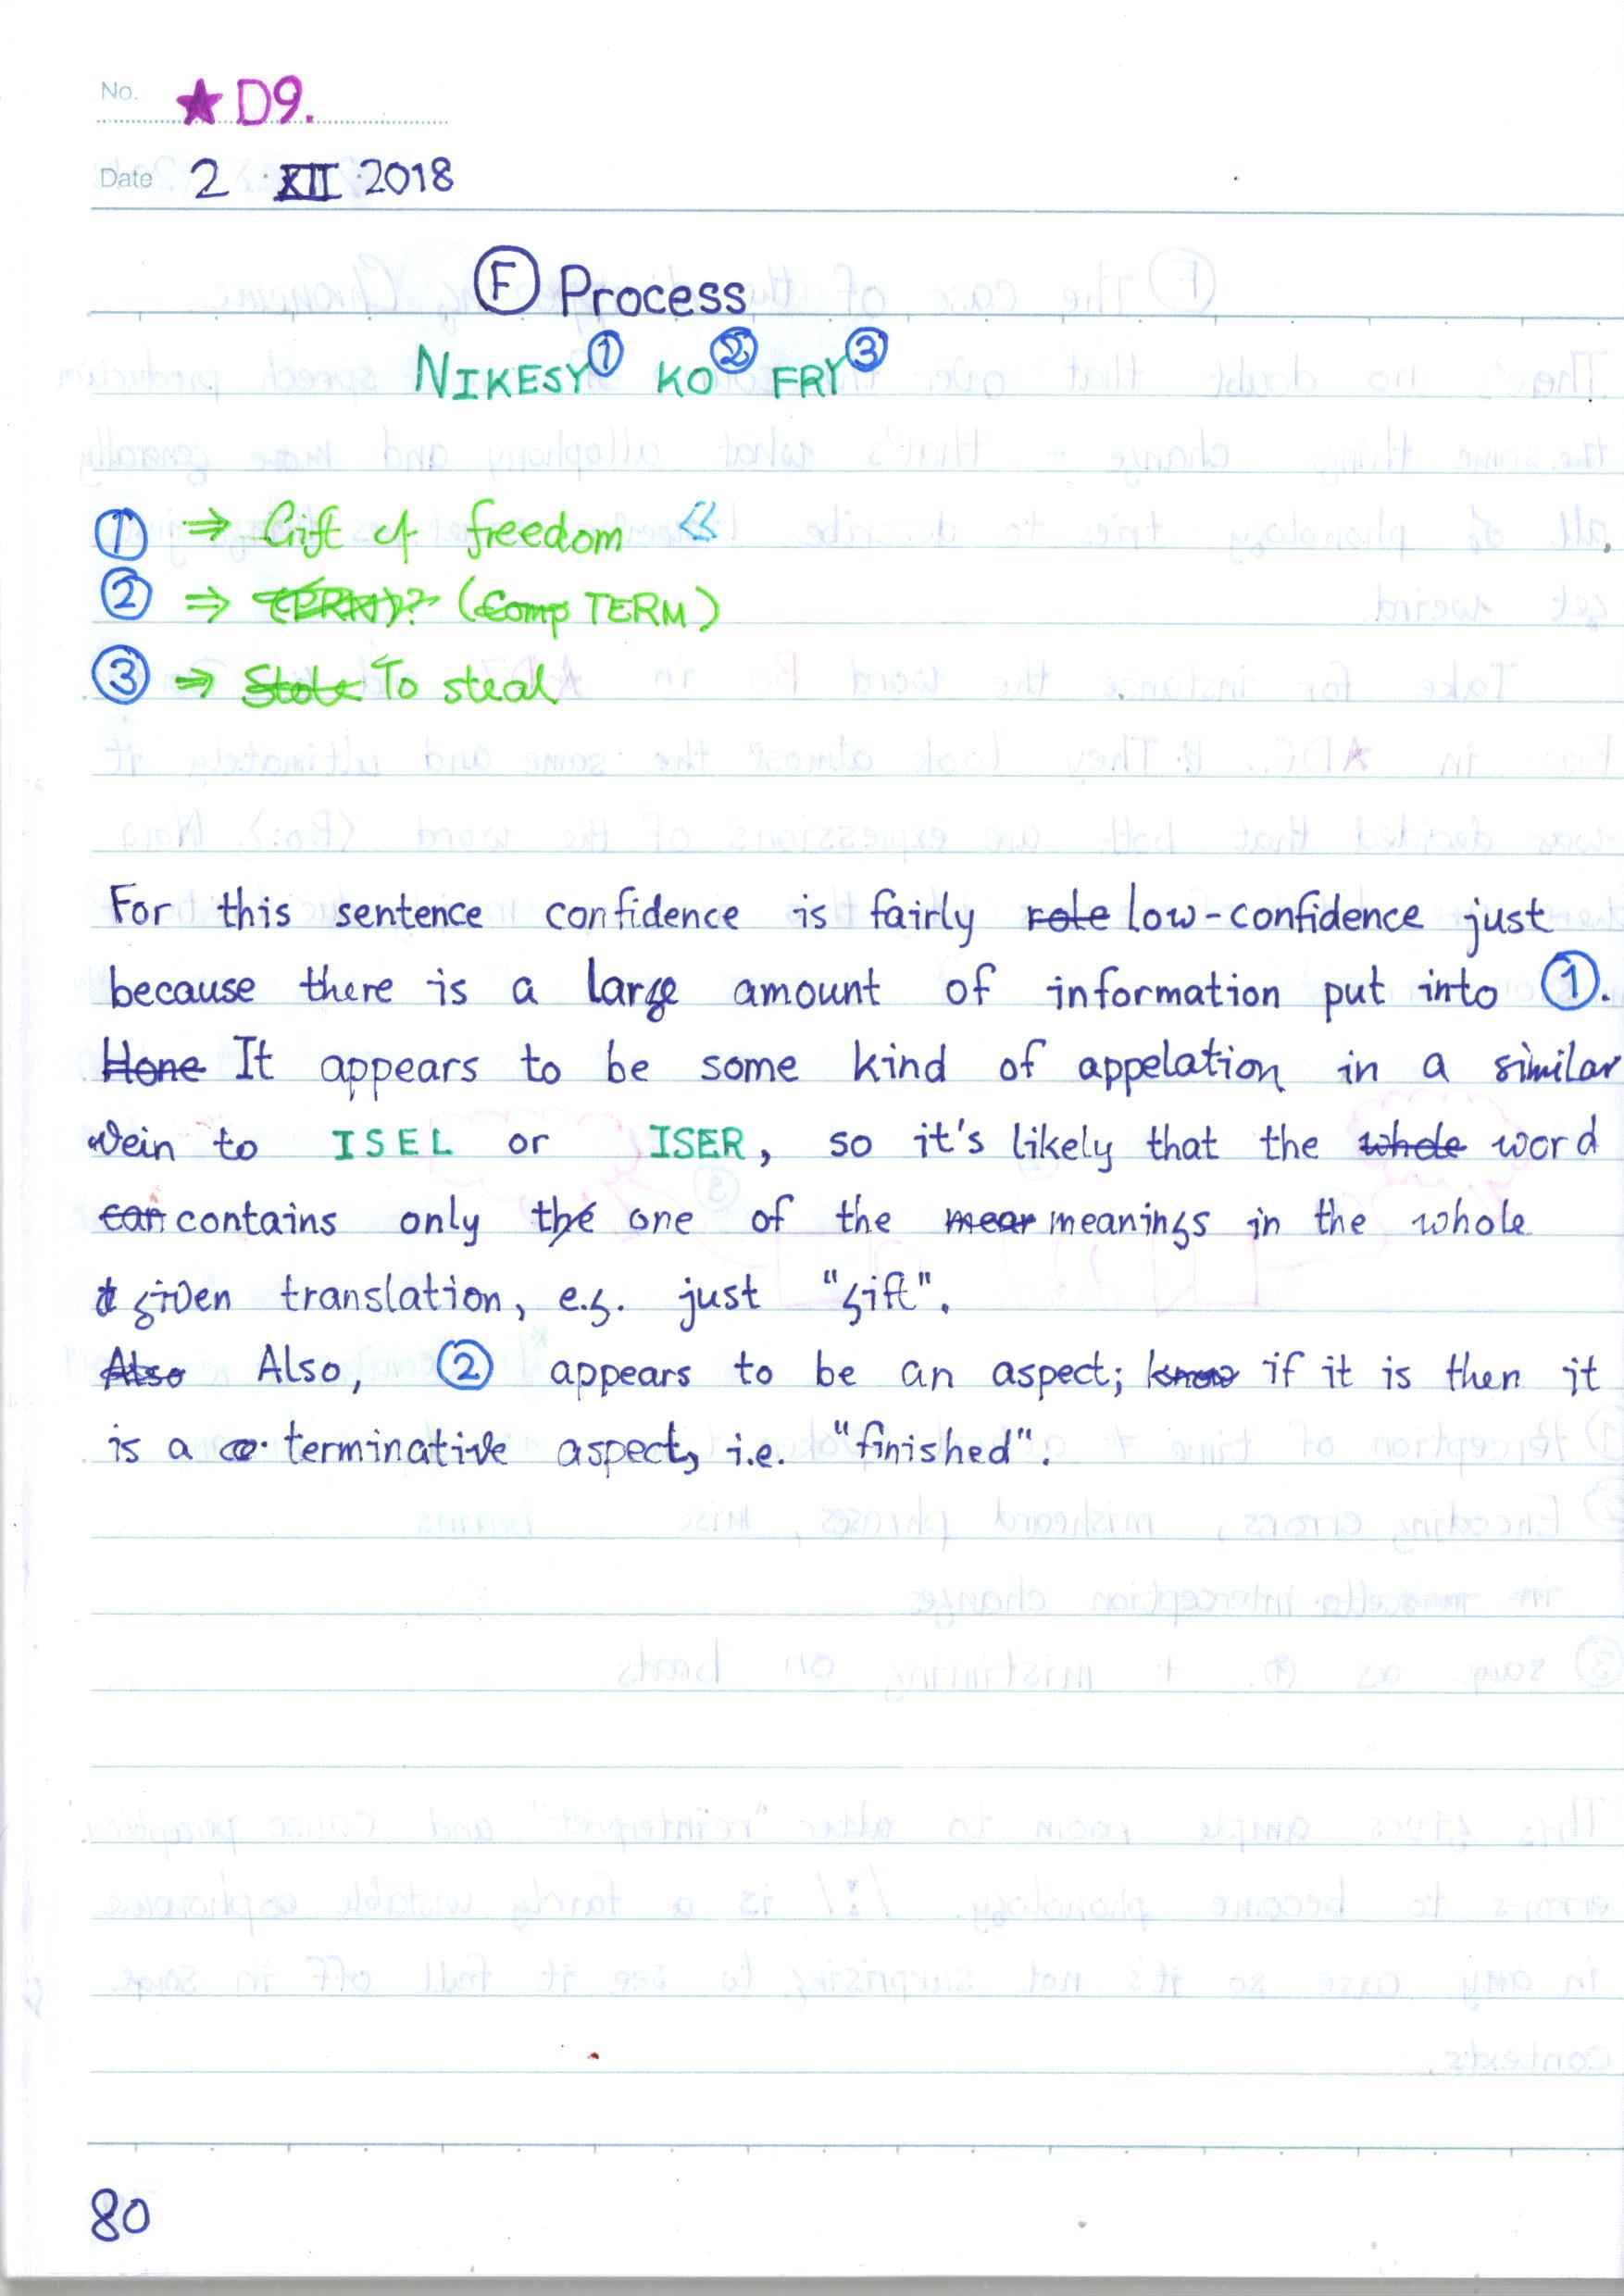 No. ★ D9.
Date 2 · XII · 2018
Ⓕ Process
NIKESY① KO② FRY③
① ⇒ Gift of freedom «
② ⇒ (PRN)? (Comp TERM)
③ ⇒ Stole To steal
For this sentence confidence is fairly rote low-confidence just
because there is a large amount of information put into ①.
Hone It appears to be some kind of appelation in a similar
vein to ISEL or ISER, so it's likely that the whole word
can contains only the one of the mear meanings in the whole
t given translation, e.g. just "gift".
Also Also, ② appears to be an aspect; know if it is then it
is a co. terminative aspect, i.e. "finished".
80